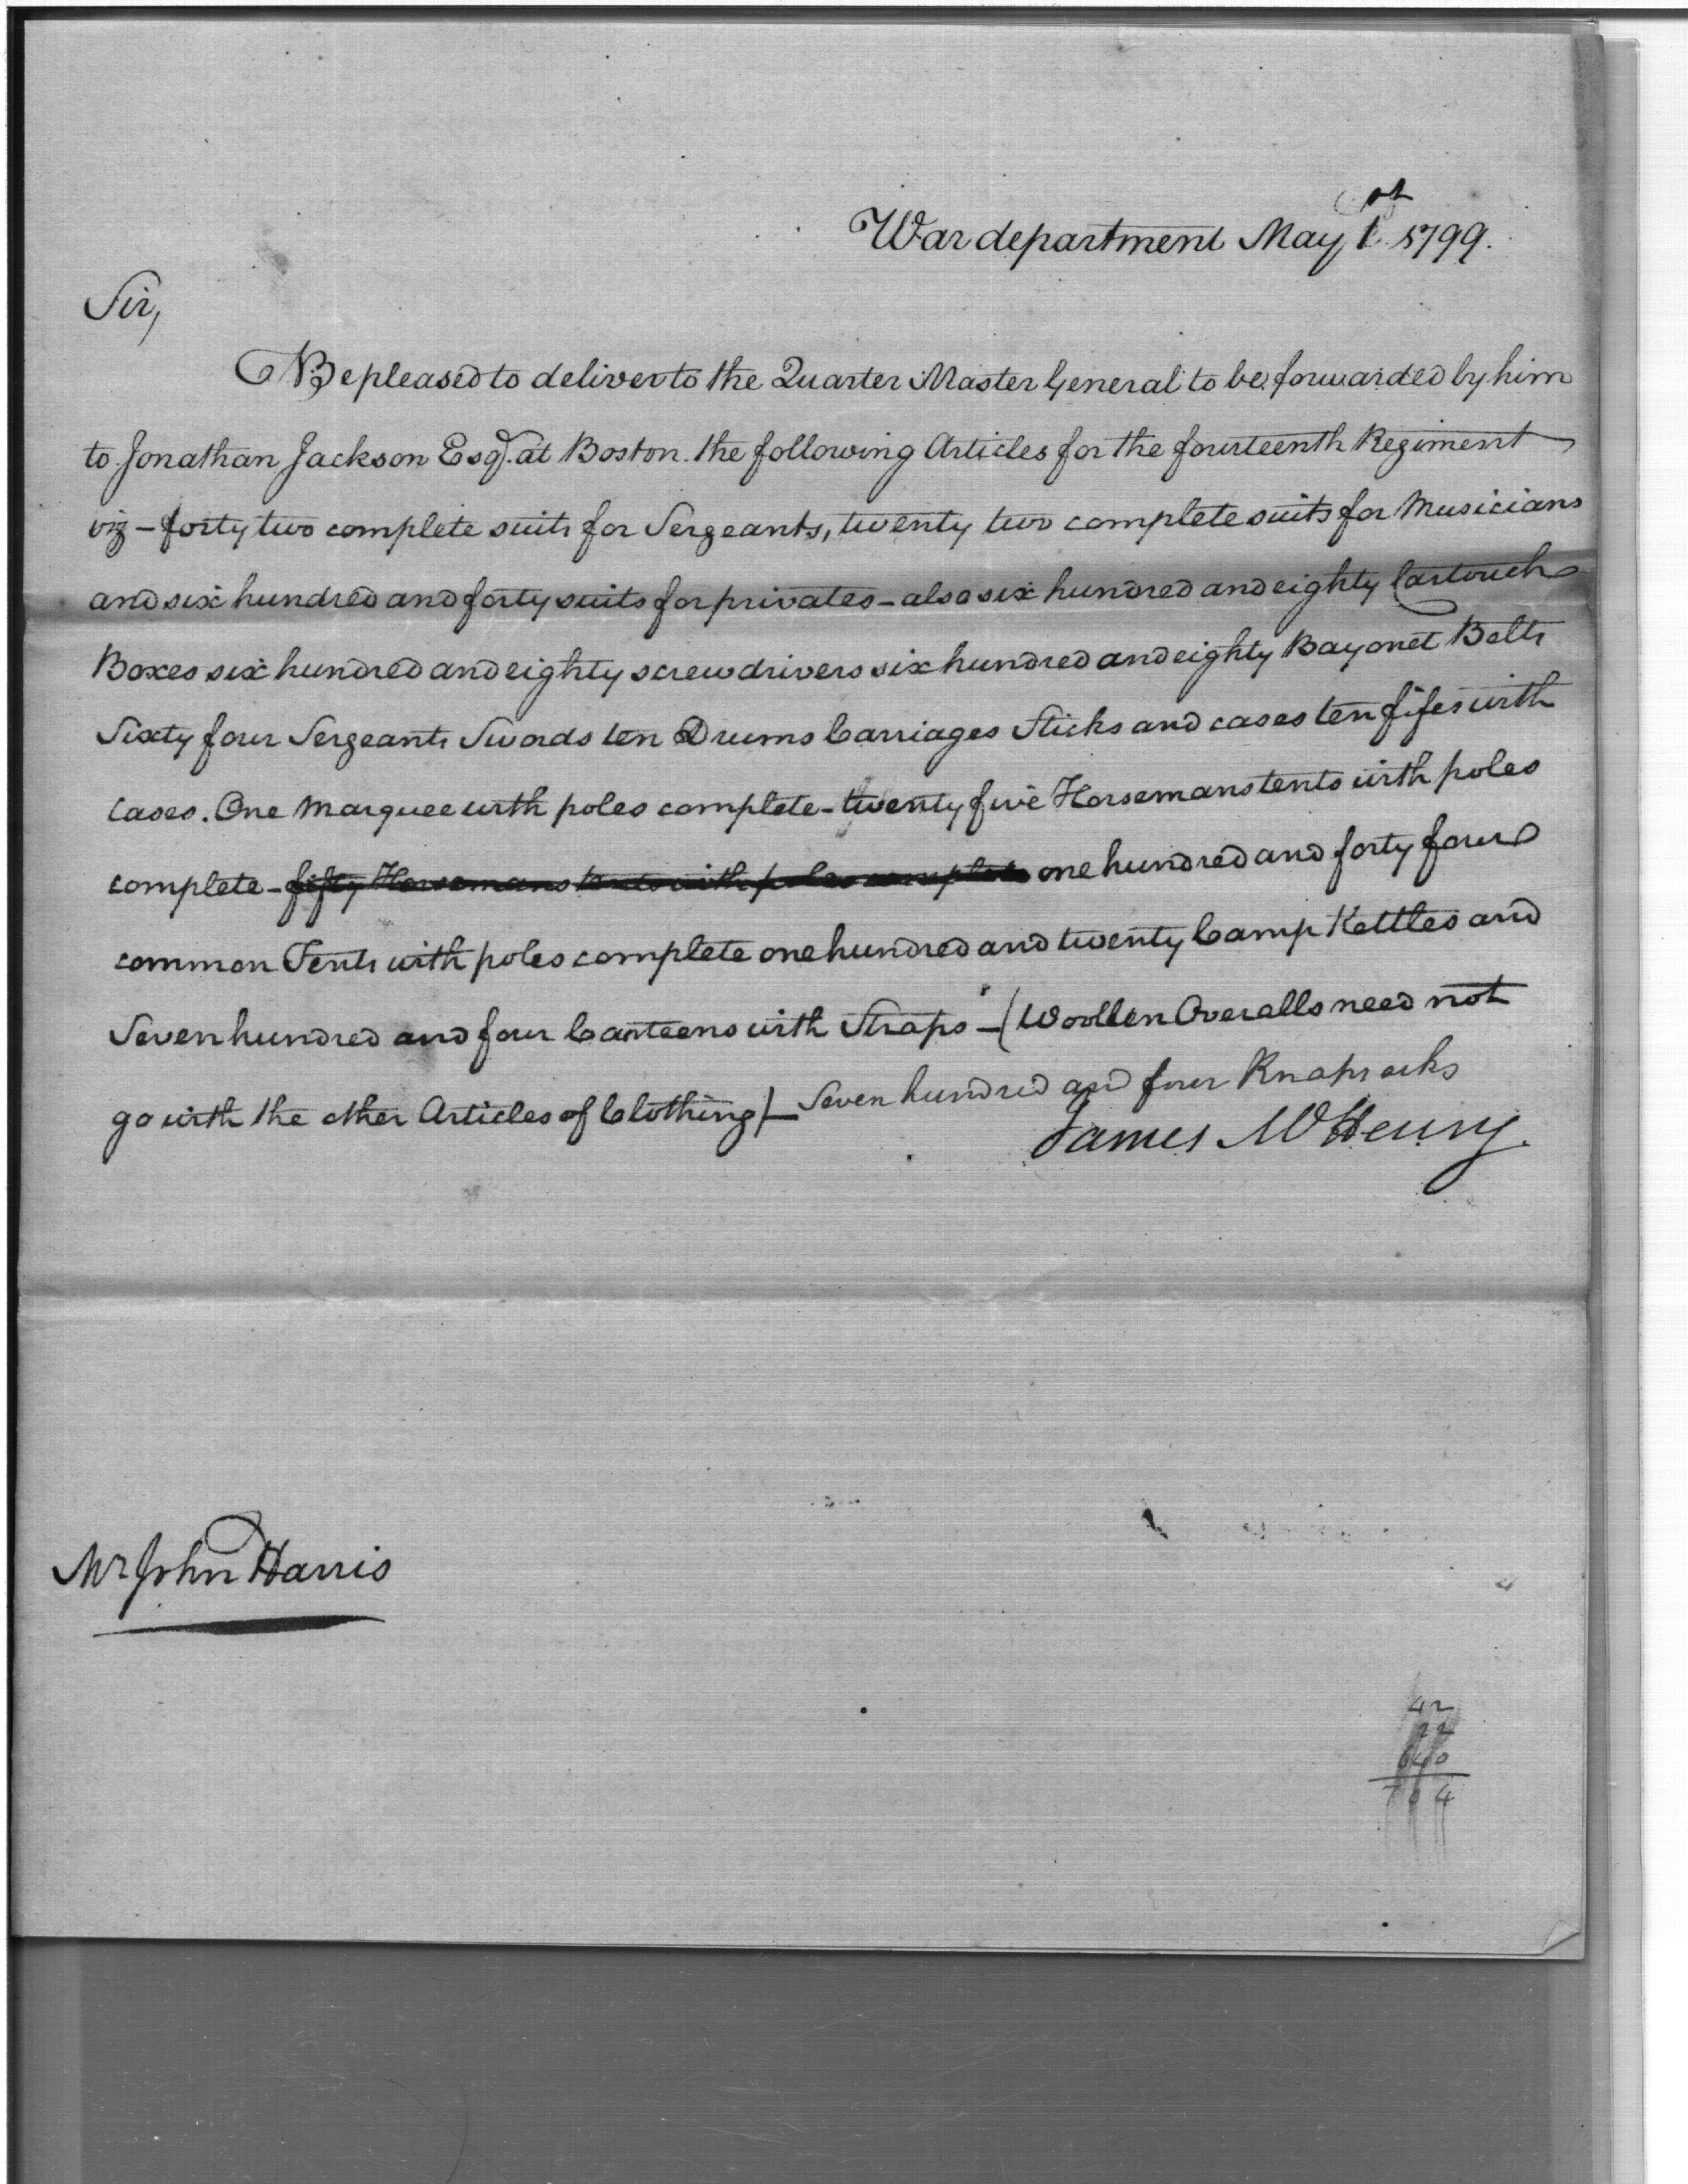 War department May 1st 1799.
Sir,
Be pleased to deliver to the Quarter Master General to be forwarded by him
to Jonathan Jackson Esqr. at Boston the following Articles for the fourteenth Regiment
viz – forty two complete suits for Sergeants, twenty two complete suits for Musicians
and six hundred and forty suits for privates – also six hundred and eighty Cartouch
Boxes six hundred and eighty screwdrivers six hundred and eighty Bayonet Belts
Sixty four Sergeants Swords ten Drums Carriages Sticks and cases ten fifes with
Cases. One Marquee with poles complete – twenty five Horsemans tents with poles
complete – fifty Horsemans tents with poles complete one hundred and forty four
common Tents with poles complete one hundred and twenty Camp Kettles and
Seven hundred and four Canteens with Straps – (Woollen Overalls need not
go with the other Articles of Clothing) – Seven hundred and four Knapsacks
James McHenry.
Mr John Harris
42
22
640
704